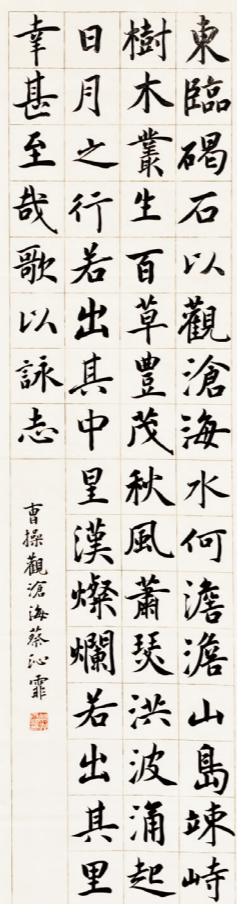 東臨碣石以觀滄海水何澹澹山島竦峙
樹木叢生百草豊茂秋風蕭瑟洪波涌起
日月之行若出其中星漢燦爛若出其里
幸甚至哉歌以詠志
曹操觀滄海蔡沁霏